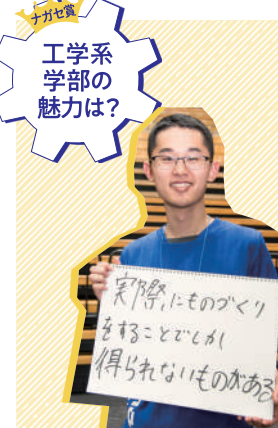 ナガセ賞
工学系
学部の
魅力は?
実際にものづくり
をすることでしか
得られないものがある